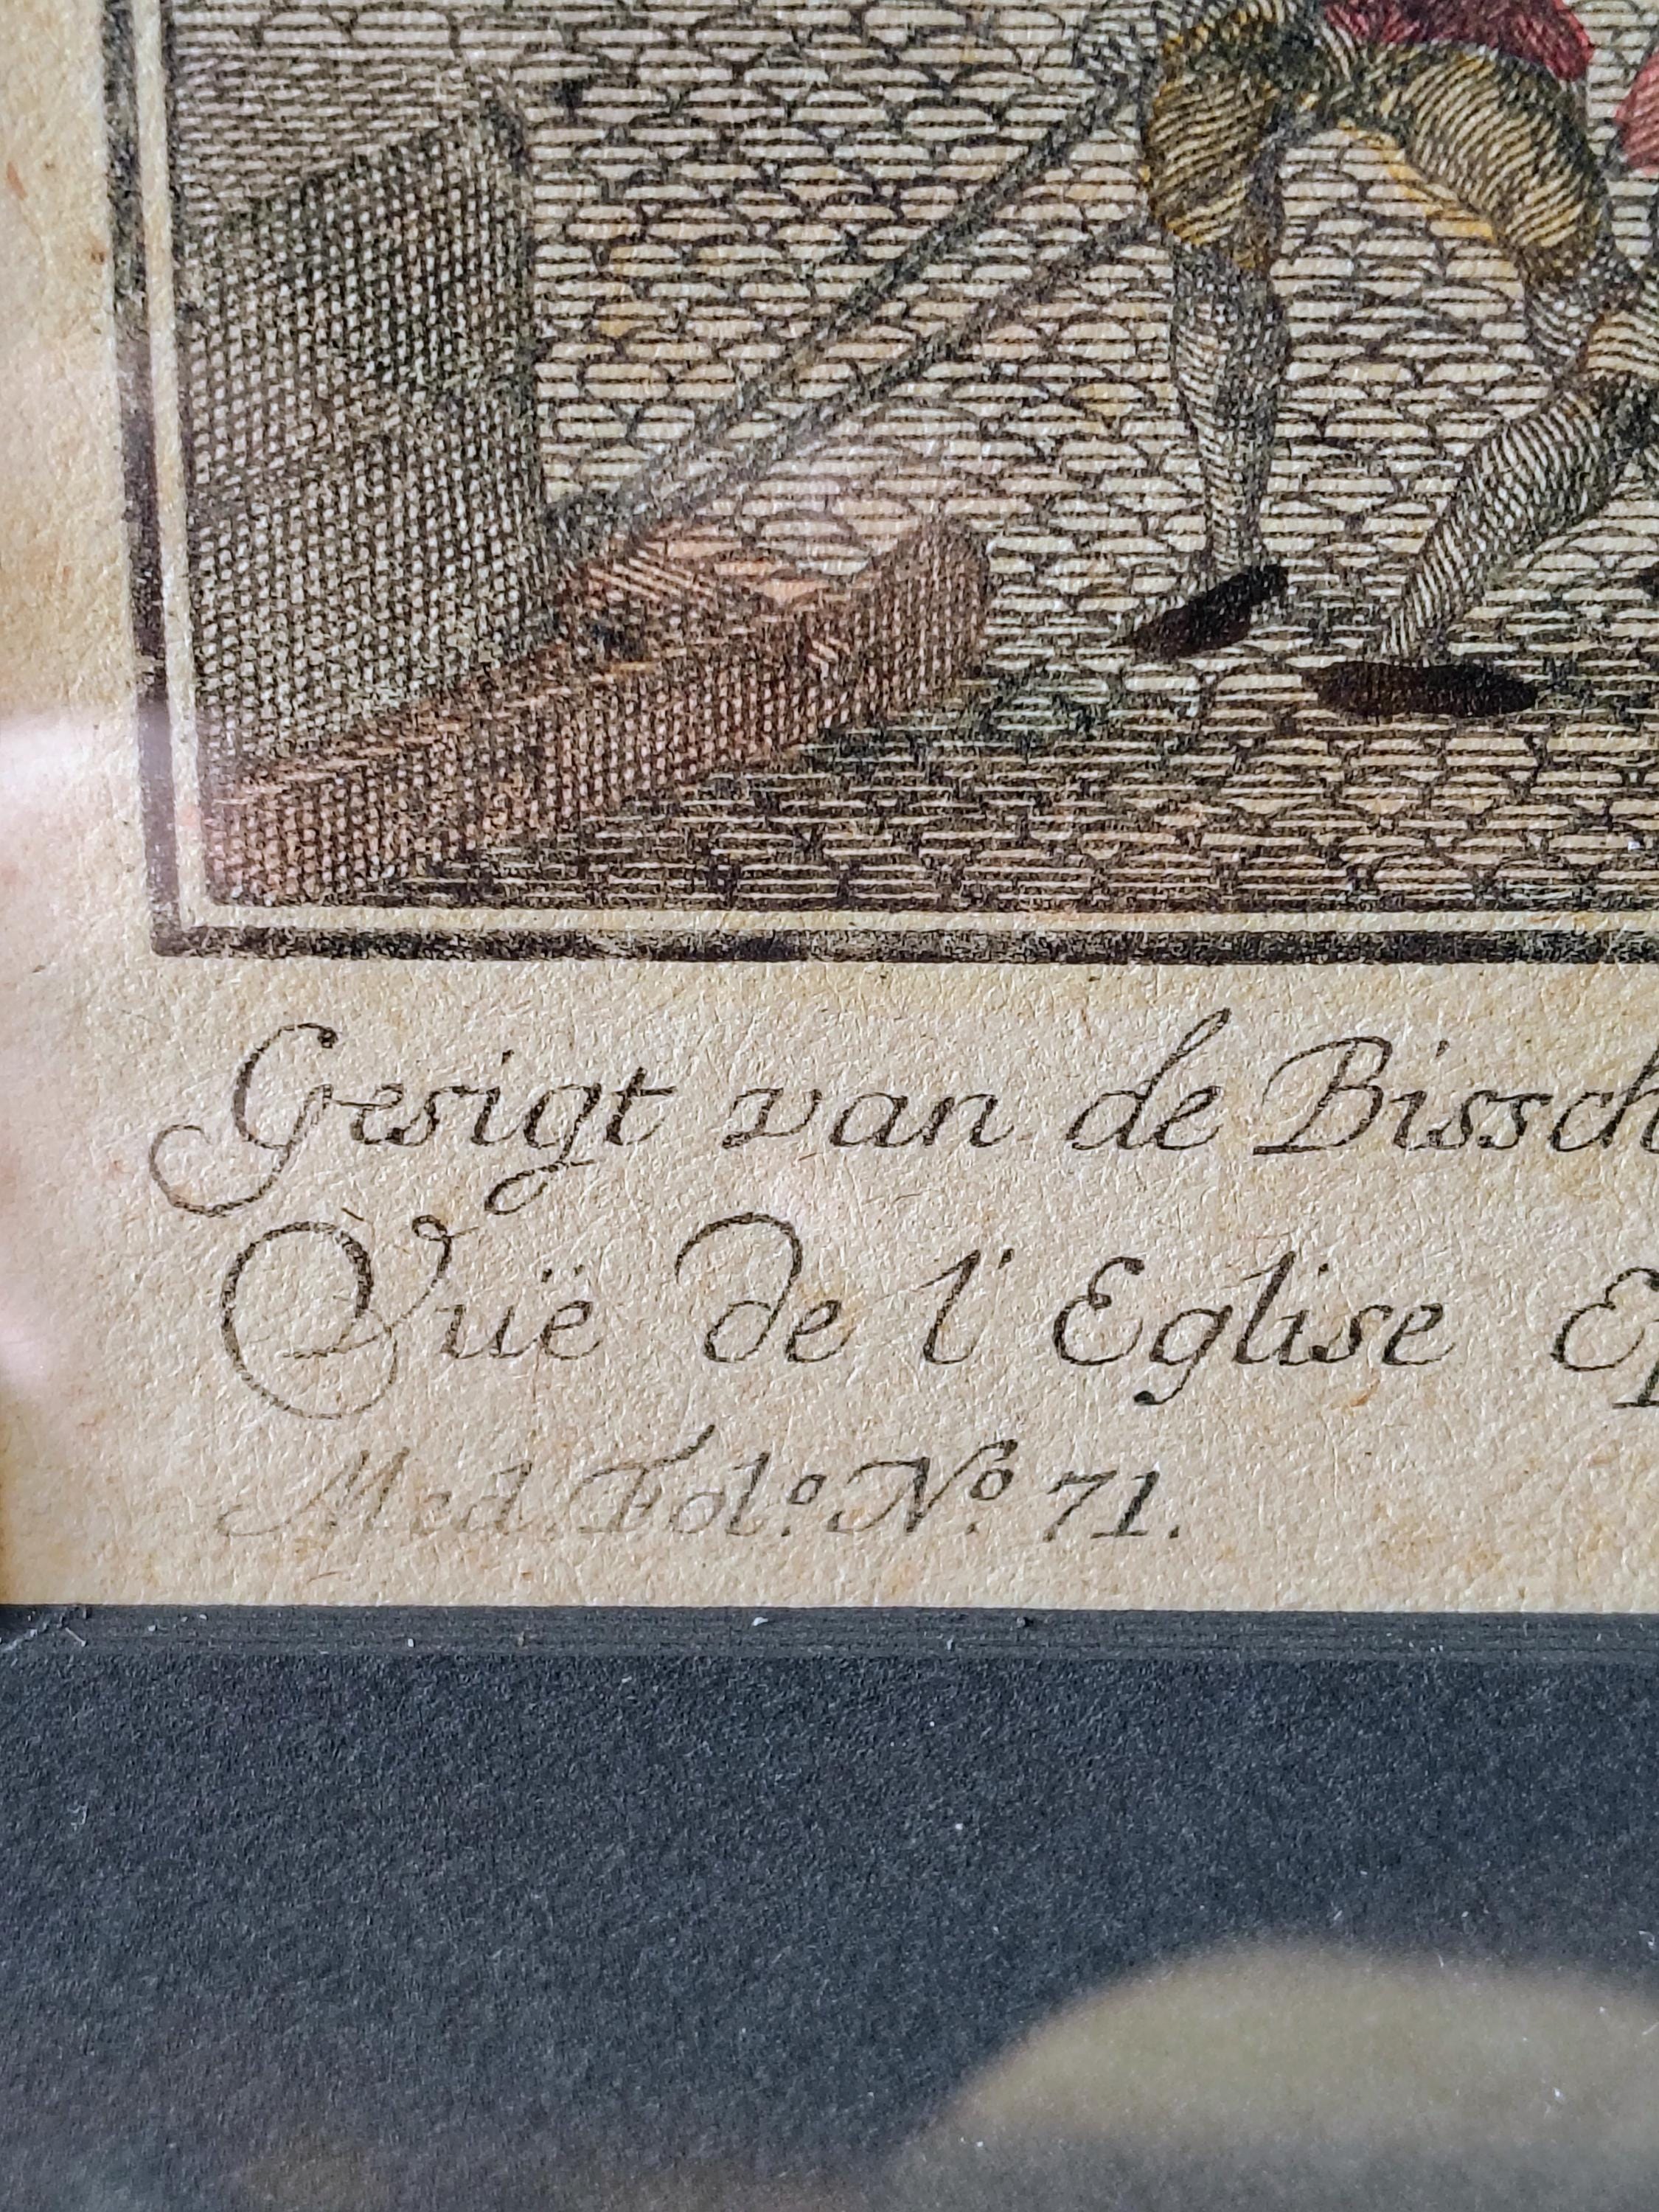 Gesigt van de Bissch
Vuë de l' Eglise Ep
Med. Fol.º Nº 71.